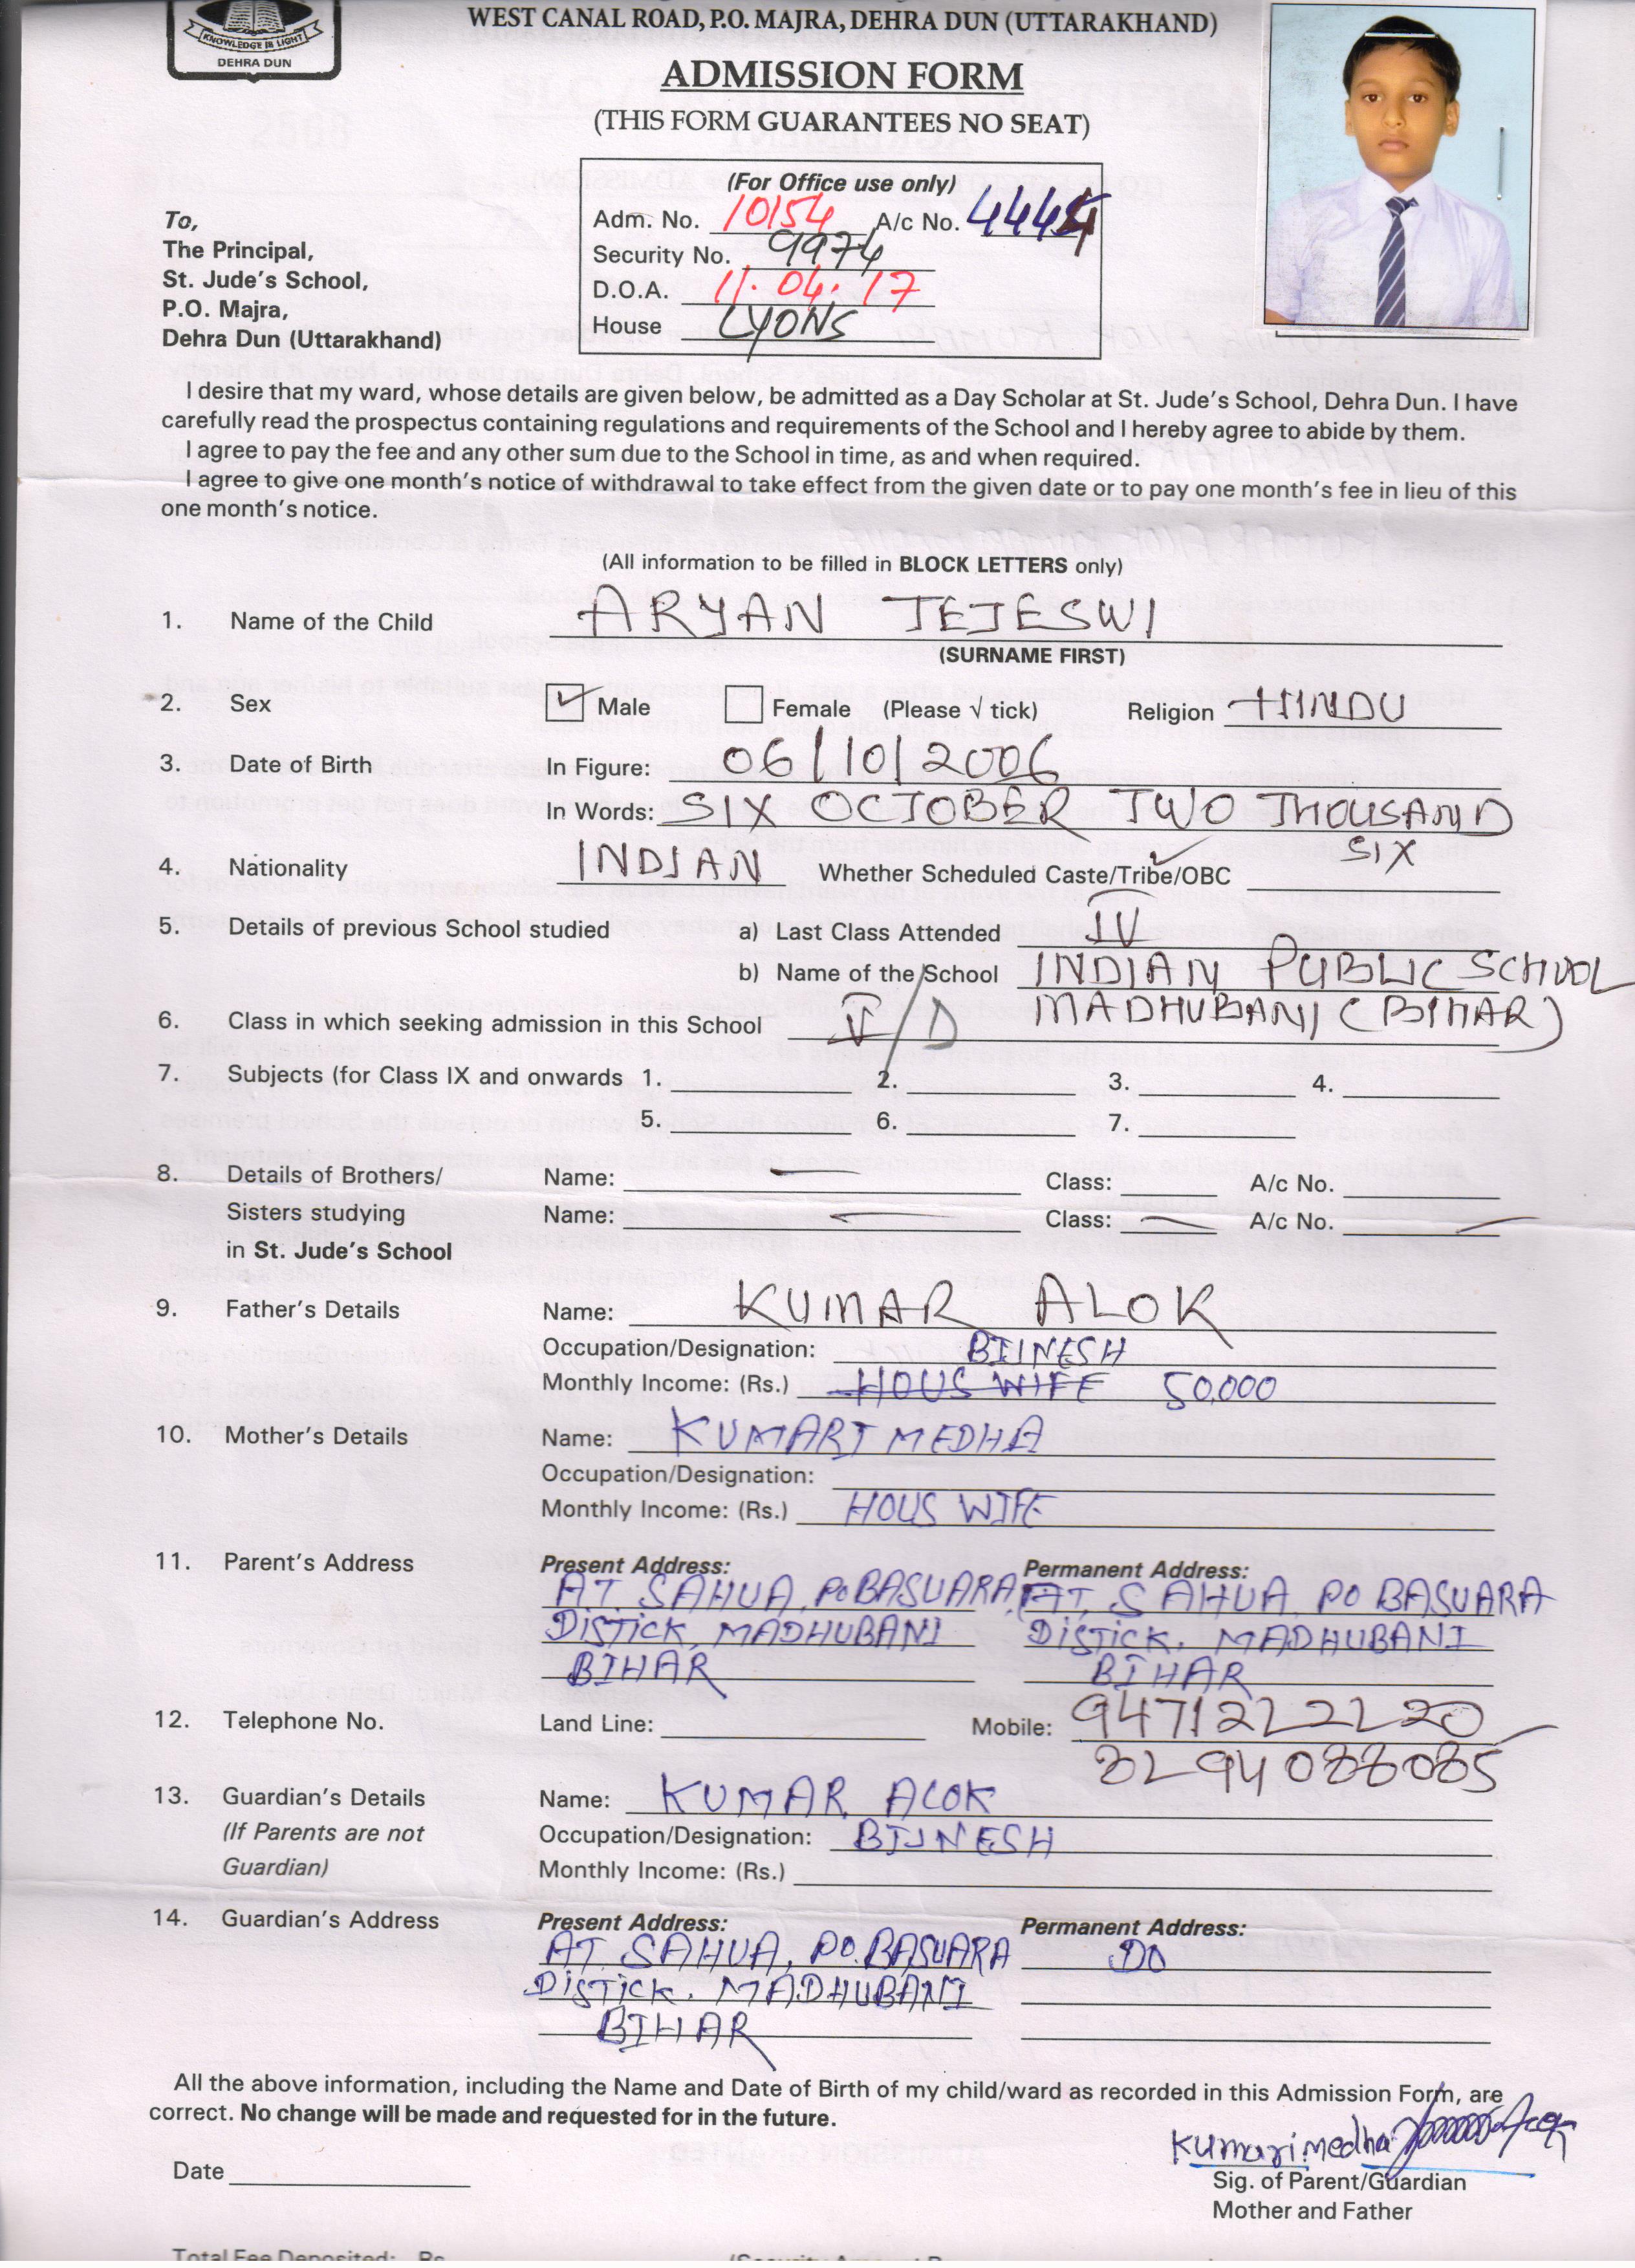 KNOWLEDGE IS LIGHT
DEHRA DUN
WEST CANAL ROAD, P.O. MAJRA, DEHRA DUN (UTTARAKHAND)
ADMISSION FORM
(THIS FORM GUARANTEES NO SEAT)
(For Office use only)
Adm. No. 10154 A/c No. 4444
Security No. 9974
D.O.A. 11.04.17
House LYONS
To,
The Principal,
St. Jude's School,
P.O. Majra,
Dehra Dun (Uttarakhand)
I desire that my ward, whose details are given below, be admitted as a Day Scholar at St. Jude's School, Dehra Dun. I have
carefully read the prospectus containing regulations and requirements of the School and I hereby agree to abide by them.
I agree to pay the fee and any other sum due to the School in time, as and when required.
I agree to give one month's notice of withdrawal to take effect from the given date or to pay one month's fee in lieu of this
one month's notice.
(All information to be filled in BLOCK LETTERS only)
1. Name of the Child ARYAN TEJESWI
(SURNAME FIRST)
2. Sex ✓ Male Female (Please √ tick) Religion HINDU
3. Date of Birth In Figure: 06/10/2006
In Words: SIX OCTOBER TWO THOUSAND
SIX
4. Nationality INDIAN Whether Scheduled Caste/Tribe/OBC
5. Details of previous School studied a) Last Class Attended IV
b) Name of the School INDIAN PUBLIC SCHOOL
MADHUBANI (BIHAR)
6. Class in which seeking admission in this School V/D
7. Subjects (for Class IX and onwards 1. 2. 3. 4.
5. 6. 7.
8. Details of Brothers/ Name: Class: A/c No.
Sisters studying Name: Class: A/c No.
in St. Jude's School
9. Father's Details Name: KUMAR ALOK
Occupation/Designation: BIINESH
Monthly Income: (Rs.) HOUS WIFE 50,000
10. Mother's Details Name: KUMARI MEDHA
Occupation/Designation:
Monthly Income: (Rs.) HOUS WIFE
11. Parent's Address Present Address: Permanent Address:
AT. SAHUA, PO BASUARA, AT, SAHUA, PO BASUARA
DISTICK, MADHUBANI DISTICK. MADHUBANI
BIHAR BIHAR
12. Telephone No. Land Line: Mobile: 9471222220
8294088085
13. Guardian's Details Name: KUMAR ALOK
(If Parents are not Occupation/Designation: BIINESH
Guardian) Monthly Income: (Rs.)
14. Guardian's Address Present Address: Permanent Address:
AT. SAHUA, PO. BASUARA DO
DISTICK. MADHUBANI
BIHAR
All the above information, including the Name and Date of Birth of my child/ward as recorded in this Admission Form, are
correct. No change will be made and requested for in the future.
Kumari medha
Date
Sig. of Parent/Guardian
Mother and Father
Total Fee Deposited: Rs.